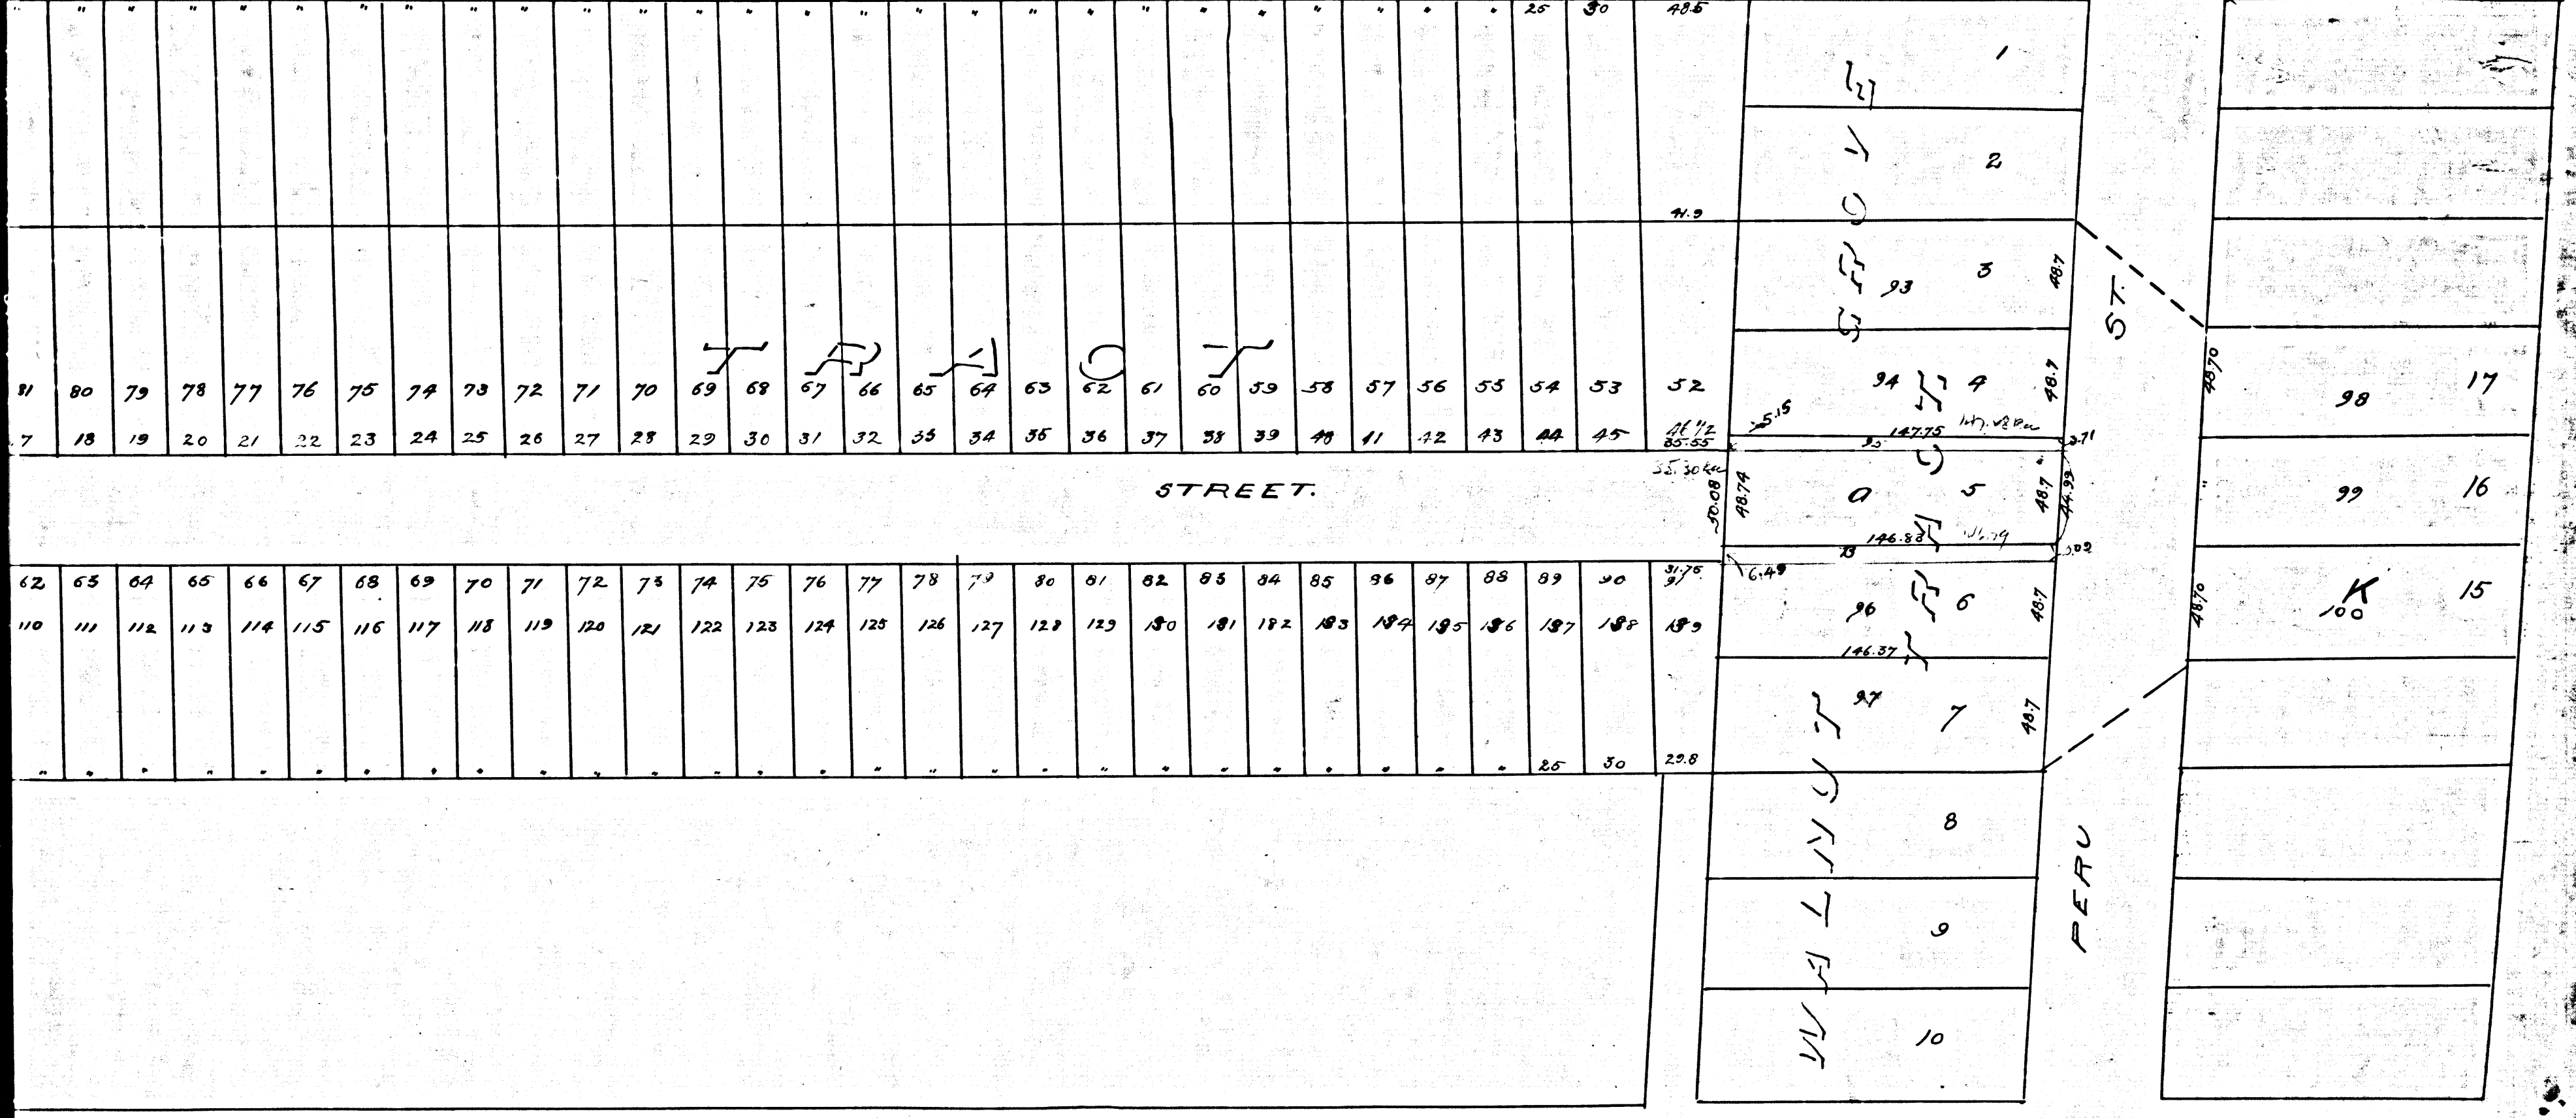 " " " " " " " " " " " " " " " " " " " " " " " " " " 25 30 48.5
41.9
81 80 79 78 77 76 75 74 73 72 71 70 69 68 67 66 65 64 63 62 61 60 59 58 57 56 55 54 53 52
7 18 19 20 21 22 23 24 25 26 27 28 29 30 31 32 33 34 35 36 37 38 39 40 41 42 43 44 45 46 1/2
35.55
STREET.
62 63 64 65 66 67 68 69 70 71 72 73 74 75 76 77 78 79 80 81 82 83 84 85 86 87 88 89 90 91
31.75
110 111 112 113 114 115 116 117 118 119 120 121 122 123 124 125 126 127 128 129 130 131 132 133 134 135 136 137 138 139
" " " " " " " " " " " " " " " " " " " " " " " " " " " 25 30 29.8
WALNUT
GROVE
TRACT
1
2
93 3 48.7
94 4 48.7
5.15 147.75 3.71
50.08 48.74 a 5 48.7 44.99
146.88
B
6.49
96 6 48.7
146.37
97 7 48.7
8
9
10
PERU ST.
48.70 98 17
" 99 16
48.70 K 100 15